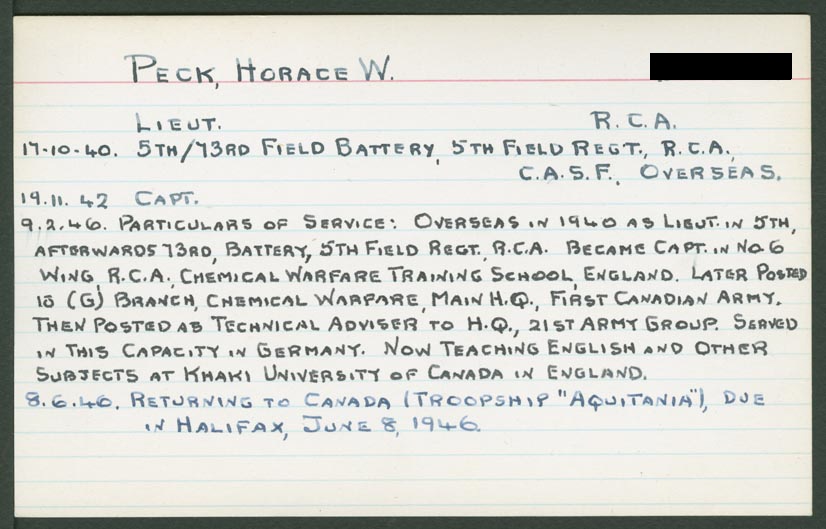 PECK, HORACE W.
LIEUT. R.C.A.
17-10-40. 5TH/73RD FIELD BATTERY, 5TH FIELD REGT., R.C.A.,
C.A.S.F., OVERSEAS.
19.11.42 CAPT.
9.2.46. PARTICULARS OF SERVICE: OVERSEAS IN 1940 AS LIEUT. IN 5TH,
AFTERWARDS 73RD, BATTERY, 5TH FIELD REGT., R.C.A. BECAME CAPT. IN NO. 6
WING, R.C.A., CHEMICAL WARFARE TRAINING SCHOOL, ENGLAND. LATER POSTED
TO (G) BRANCH, CHEMICAL WARFARE, MAIN H.Q., FIRST CANADIAN ARMY.
THEN POSTED AS TECHNICAL ADVISER TO H.Q., 21ST ARMY GROUP. SERVED
IN THIS CAPACITY IN GERMANY. NOW TEACHING ENGLISH AND OTHER
SUBJECTS AT KHAKI UNIVERSITY OF CANADA IN ENGLAND.
8.6.46. RETURNING TO CANADA (TROOPSHIP "AQUITANIA"), DUE
IN HALIFAX, JUNE 8, 1946.